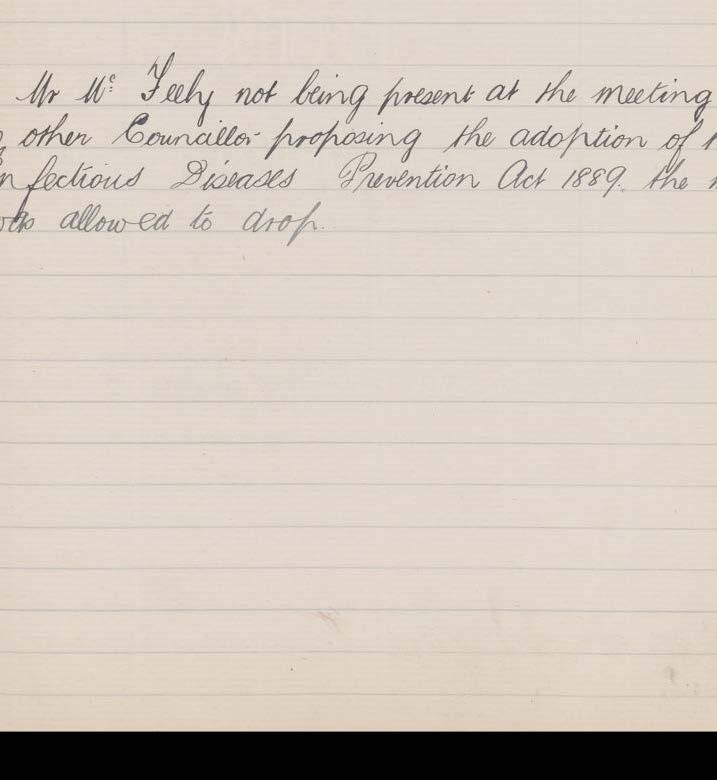 Mr Mc Feely not being present at the meeting
other Councillor proposing the adoption of
nfectious Diseases Prevention Act 1889. the
allowed to drop.